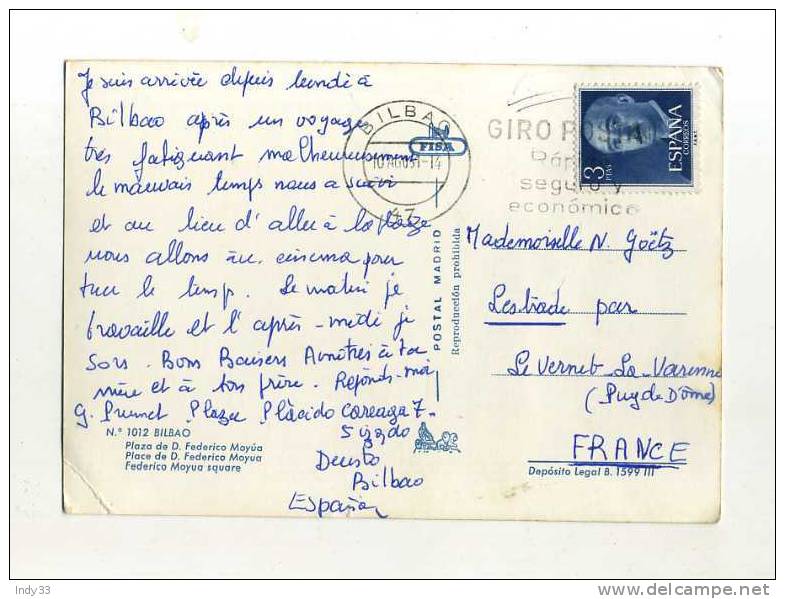 Je suis arrivée depuis lundi à
Bilbao après un voyage
très fatiguant malheureusement
le mauvais temps nous a suivi
et au lieu d'aller à la plage
nous allons au cinema pour
tuer le temp. Le matin je
travaille et l'après-midi je
sors. Bons Baisers à ta
mère et à ton frère. Réponds-moi
G. Prunet Plaza Plàcido Careaga 7-
5 izqdo
Deusto
Bilbao
España
N.° 1012 BILBAO
Plaza de D. Federico Moyúa
Place de D. Federico Moyua
Federico Moyua square
BILBAO
10 AGO 14
47
FISA
POSTAL MADRID
Reproducción prohibida
GIRO POSTAL
seguro y
económico
3 PTAS
ESPAÑA
CORREOS
F.N.M.T.
Mademoiselle N. Goëtz
Lestrade par
Le Vernet-La-Varenne
(Puy de Dôme)
FRANCE
Depósito Legal B. 1599 III
Indy33
delcampe.net